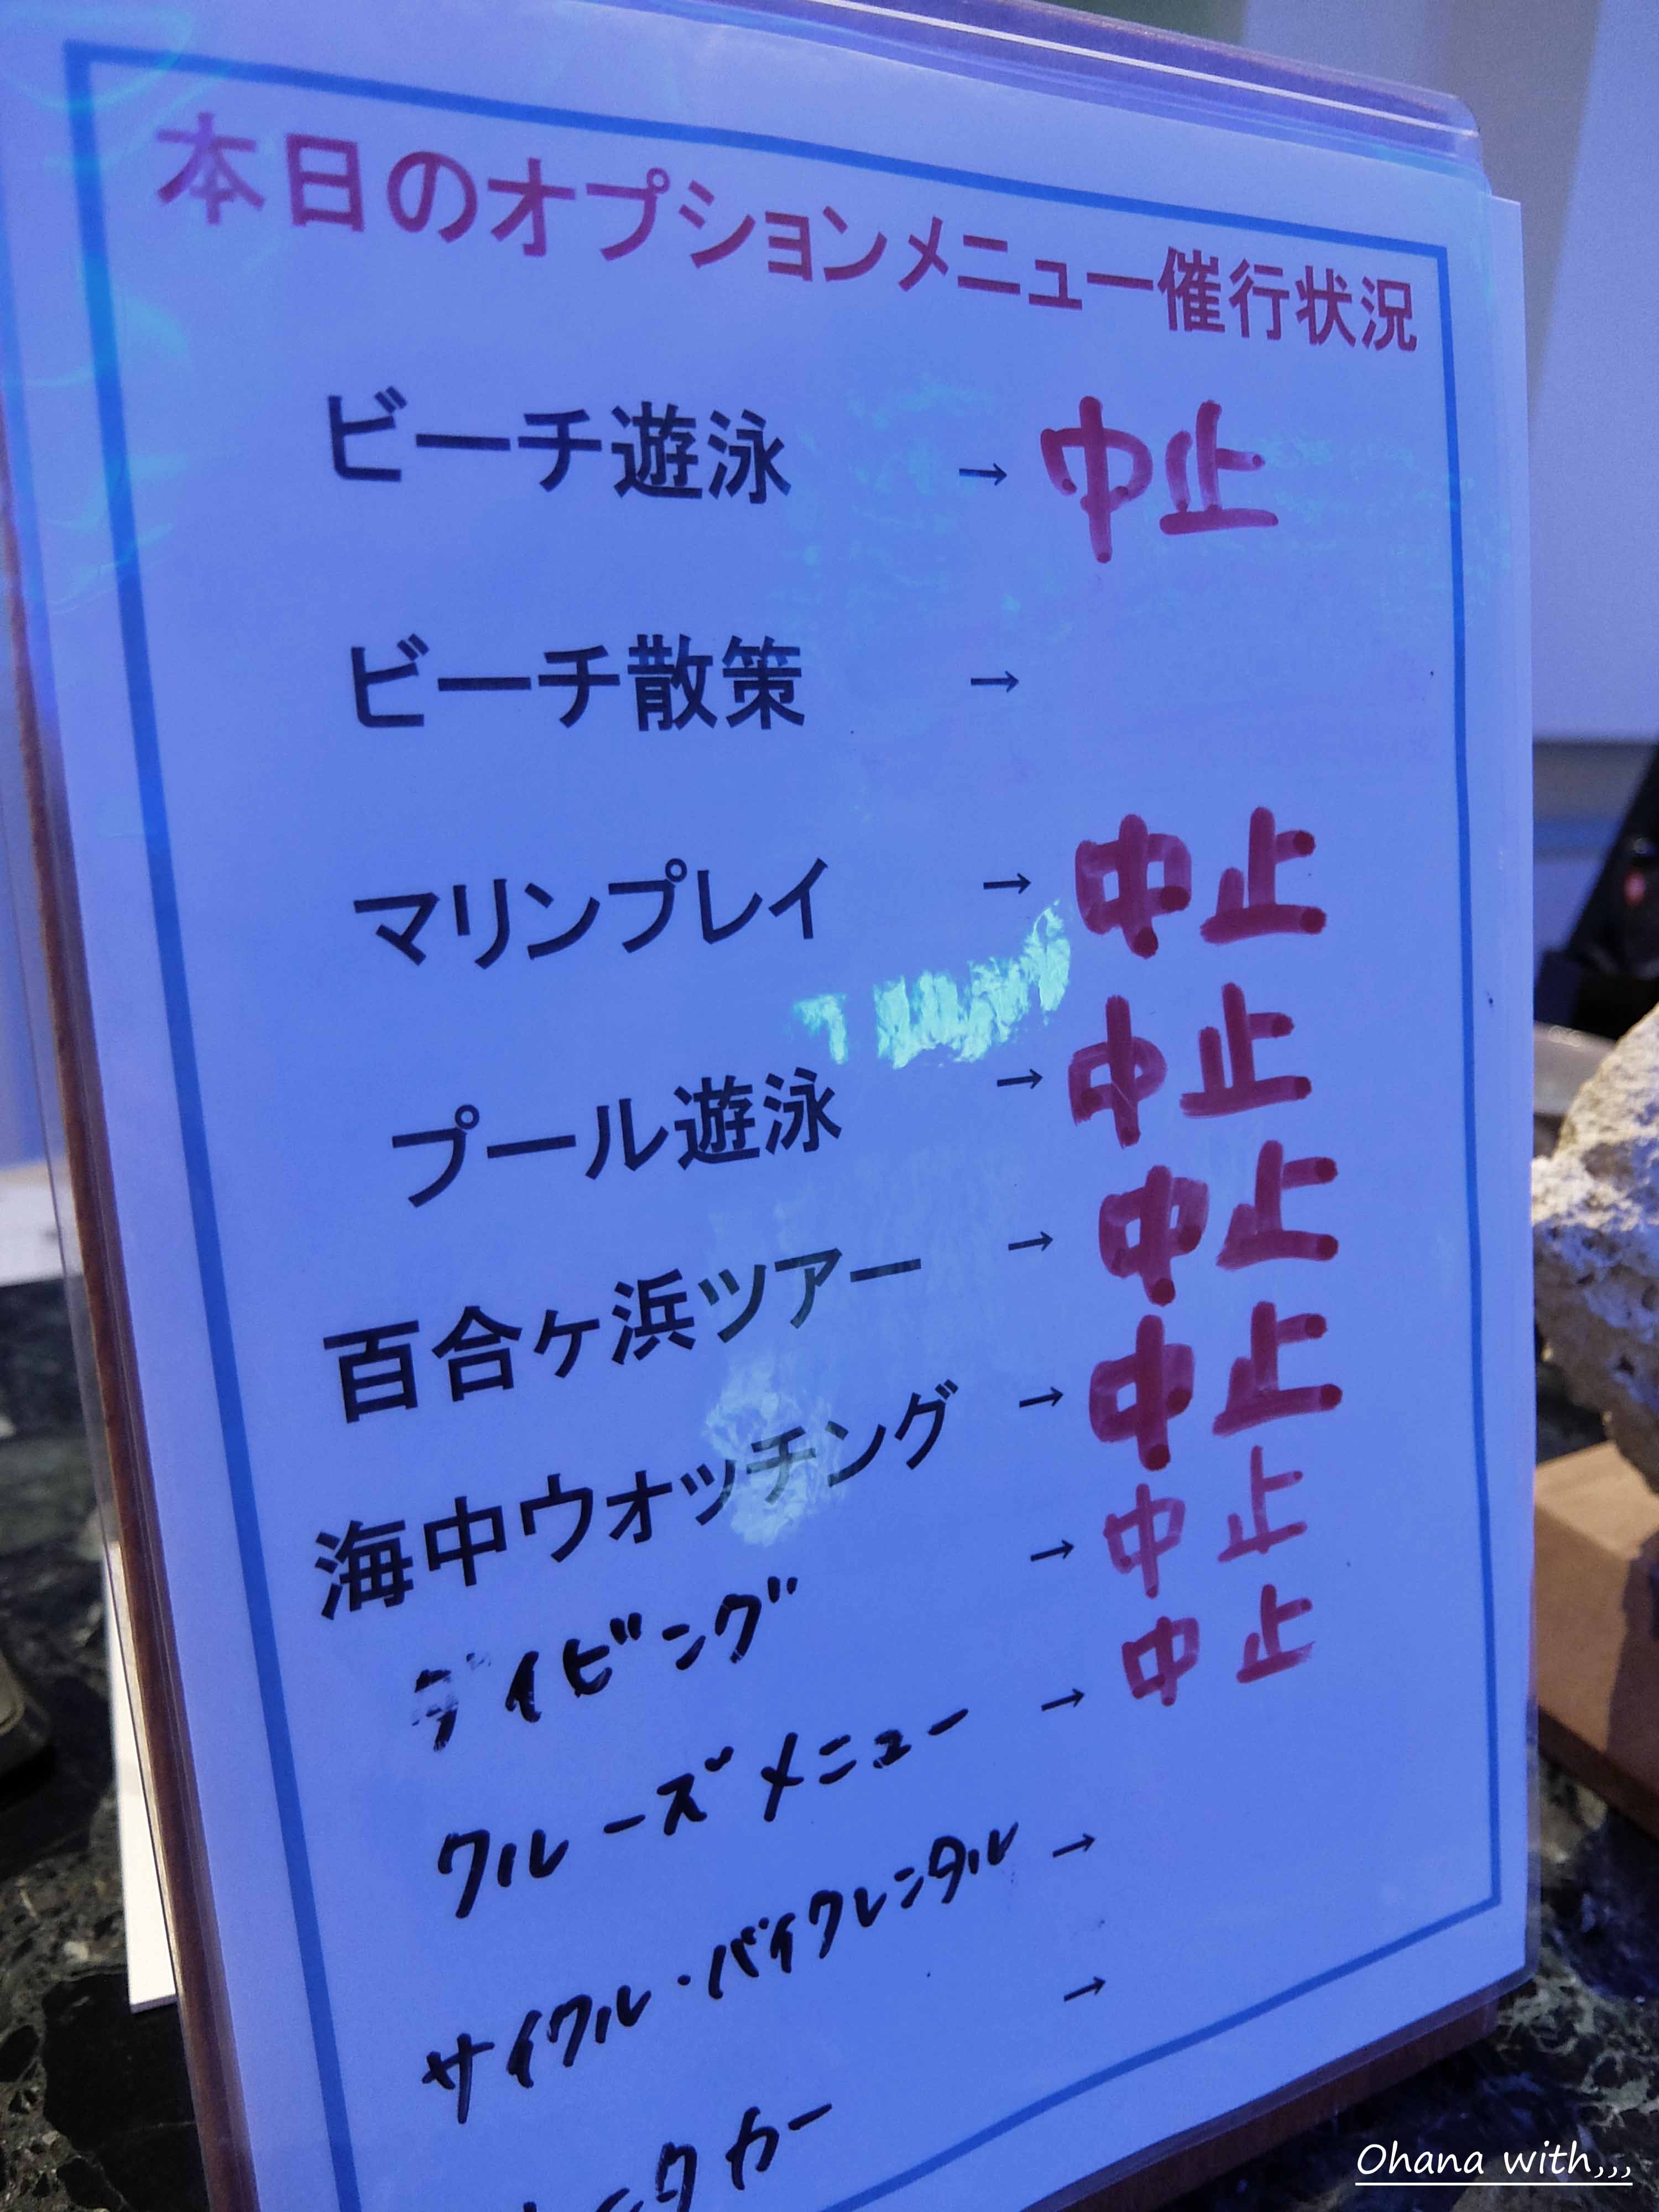 本日のオプションメニュー催行状況
ビーチ遊泳 → 中止
ビーチ散策 →
マリンプレイ → 中止
プール遊泳 → 中止
百合ヶ浜ツアー → 中止
海中ウォッチング → 中止
ダイビング → 中止
クルーズメニュー → 中止
サイクル・バイクレンタル →
→
Ohana with,,,